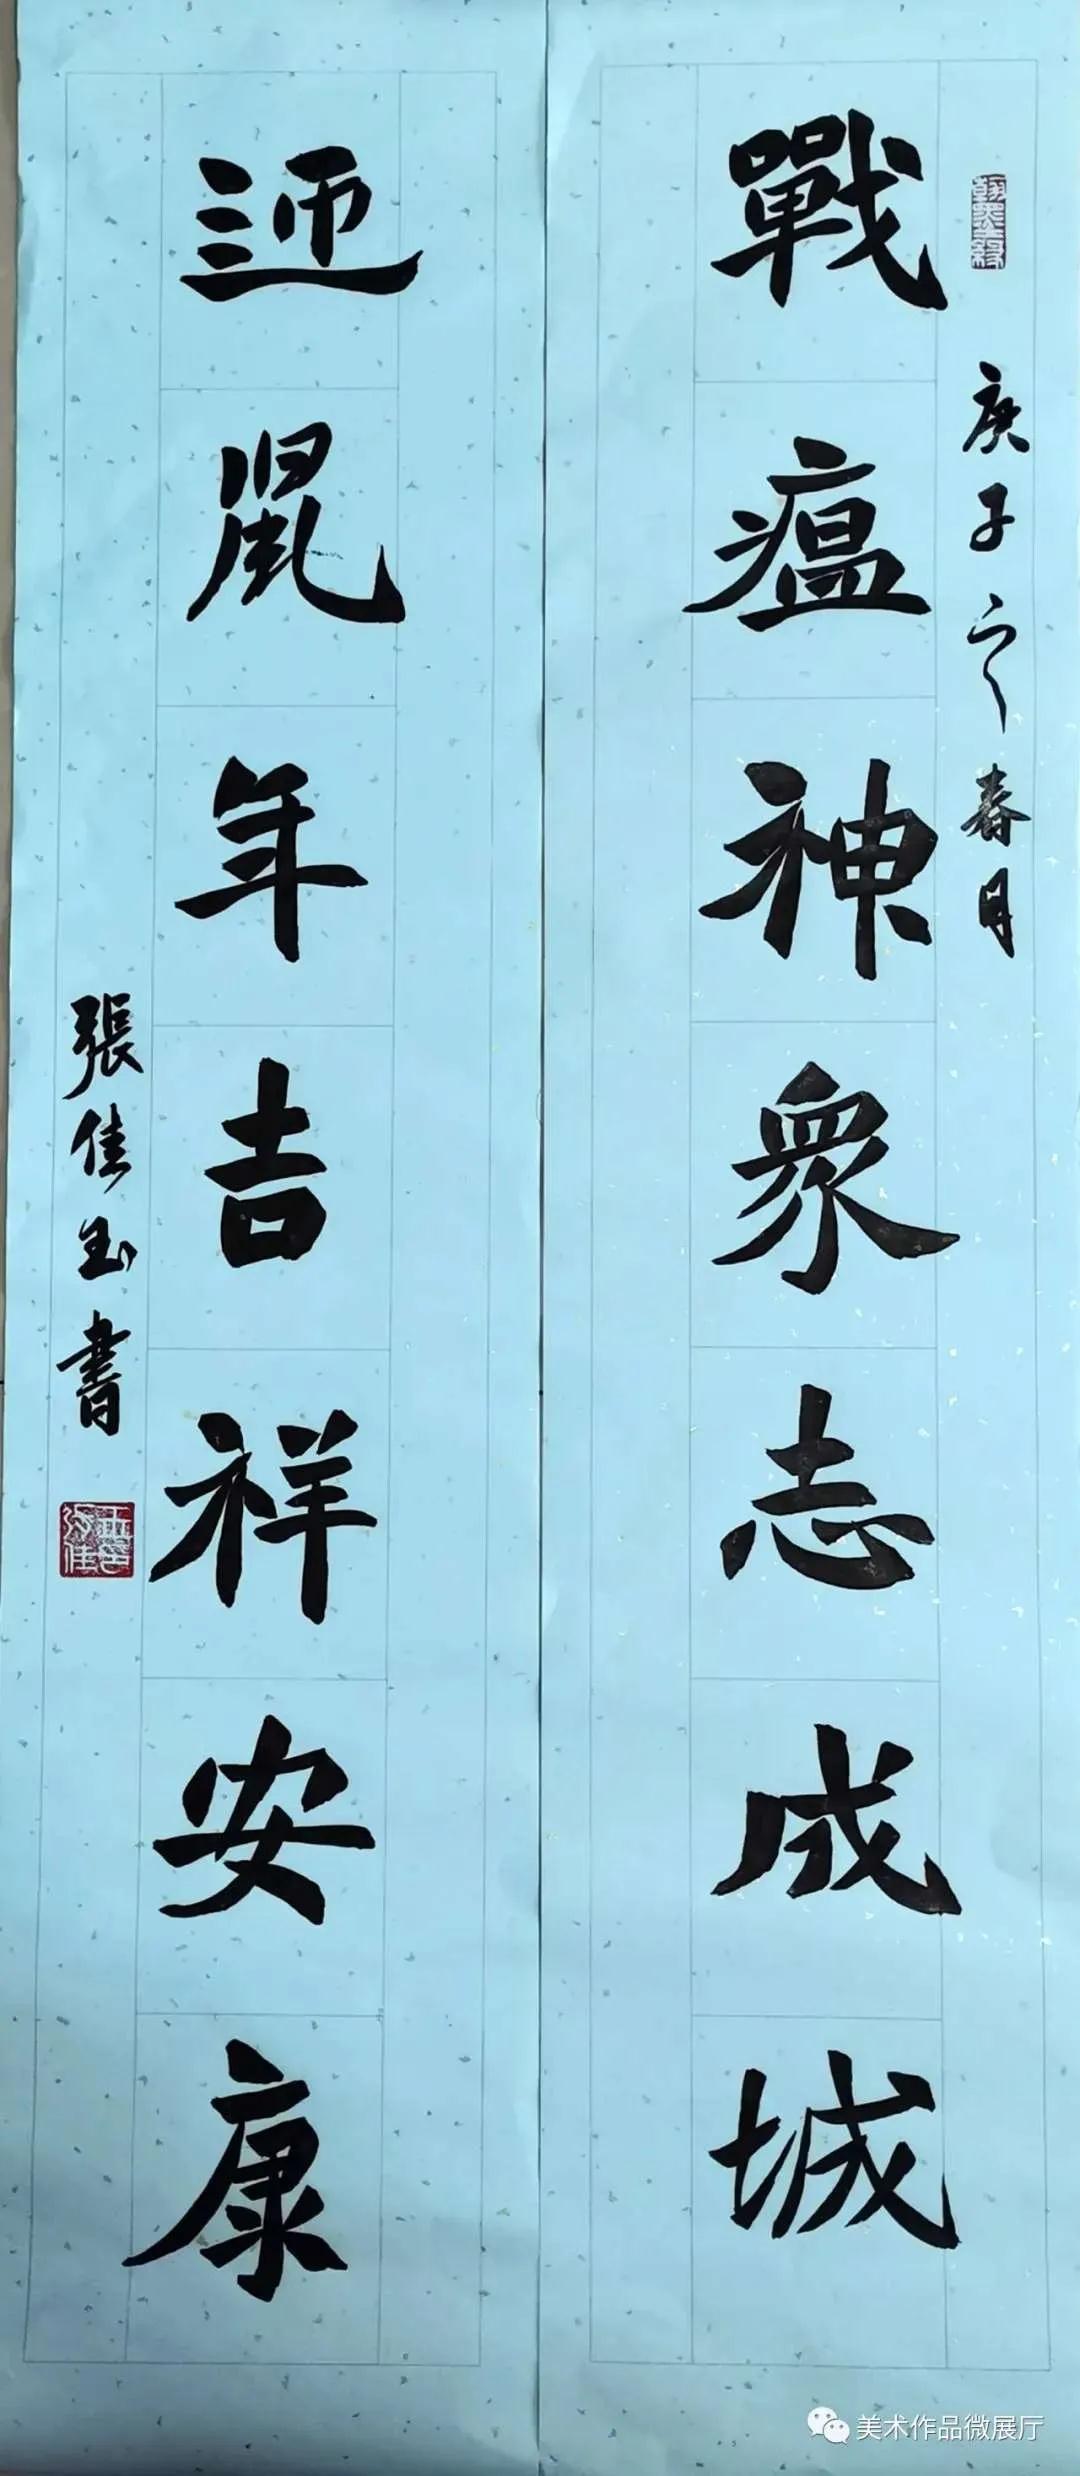 庚子之春月
戰瘟神衆志成城
迎鼠年吉祥安康
張佳玉書
美术作品微展厅